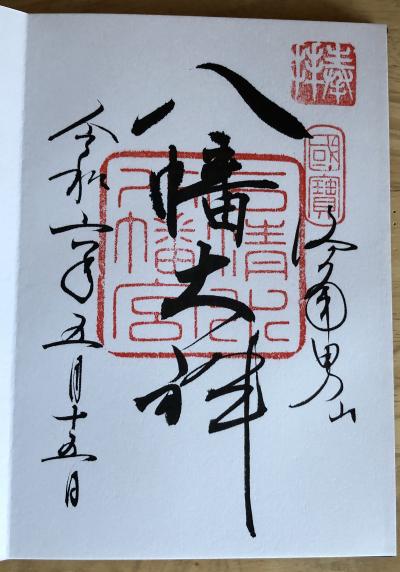 奉拝
國寶
洛南男山
八幡大神
石清水
八幡宮
令和六年五月十五日